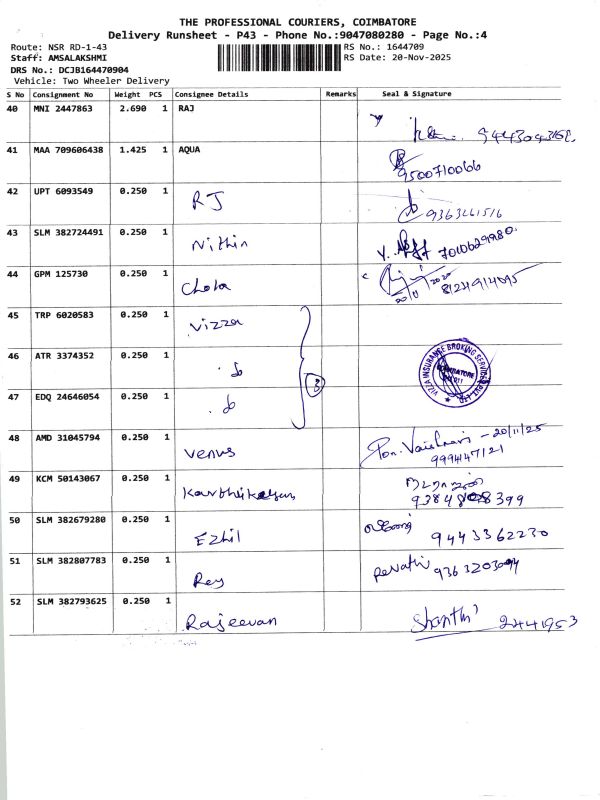 THE PROFESSIONAL COURIERS, COIMBATORE
Delivery Runsheet - P43 - Phone No.:9047080280 - Page No.:4
Route: NSR RD-1-43 RS No.: 1644709
Staff: AMSALAKSHMI RS Date: 20-Nov-2025
DRS No.: DCJB164470904
Vehicle: Two Wheeler Delivery
S No Consignment No Weight PCS Consignee Details Remarks Seal & Signature
40 MNI 2447863 2.690 1 RAJ
41 MAA 709606438 1.425 1 AQUA 9500710066
42 UPT 6093549 0.250 1 RJ 9363261516
43 SLM 382724491 0.250 1 Nithin 7010629980
44 GPM 125730 0.250 1 Chola 20/11/2025 8124914095
45 TRP 6020583 0.250 1 Vizza
46 ATR 3374352 0.250 1 do 3
VIZZA INSURANCE BROKING SERVICES PVT. LTD. COIMBATORE
47 EDQ 24646054 0.250 1 do
48 AMD 31045794 0.250 1 Venus Pon. Vaishnavi - 20/11/25
999447121
49 KCM 50143067 0.250 1
50 SLM 382679280 0.250 1 Ezhil 9443362230
51 SLM 382807783 0.250 1 Rey Revathi
52 SLM 382793625 0.250 1 Rajeevan Shanthi 2441953